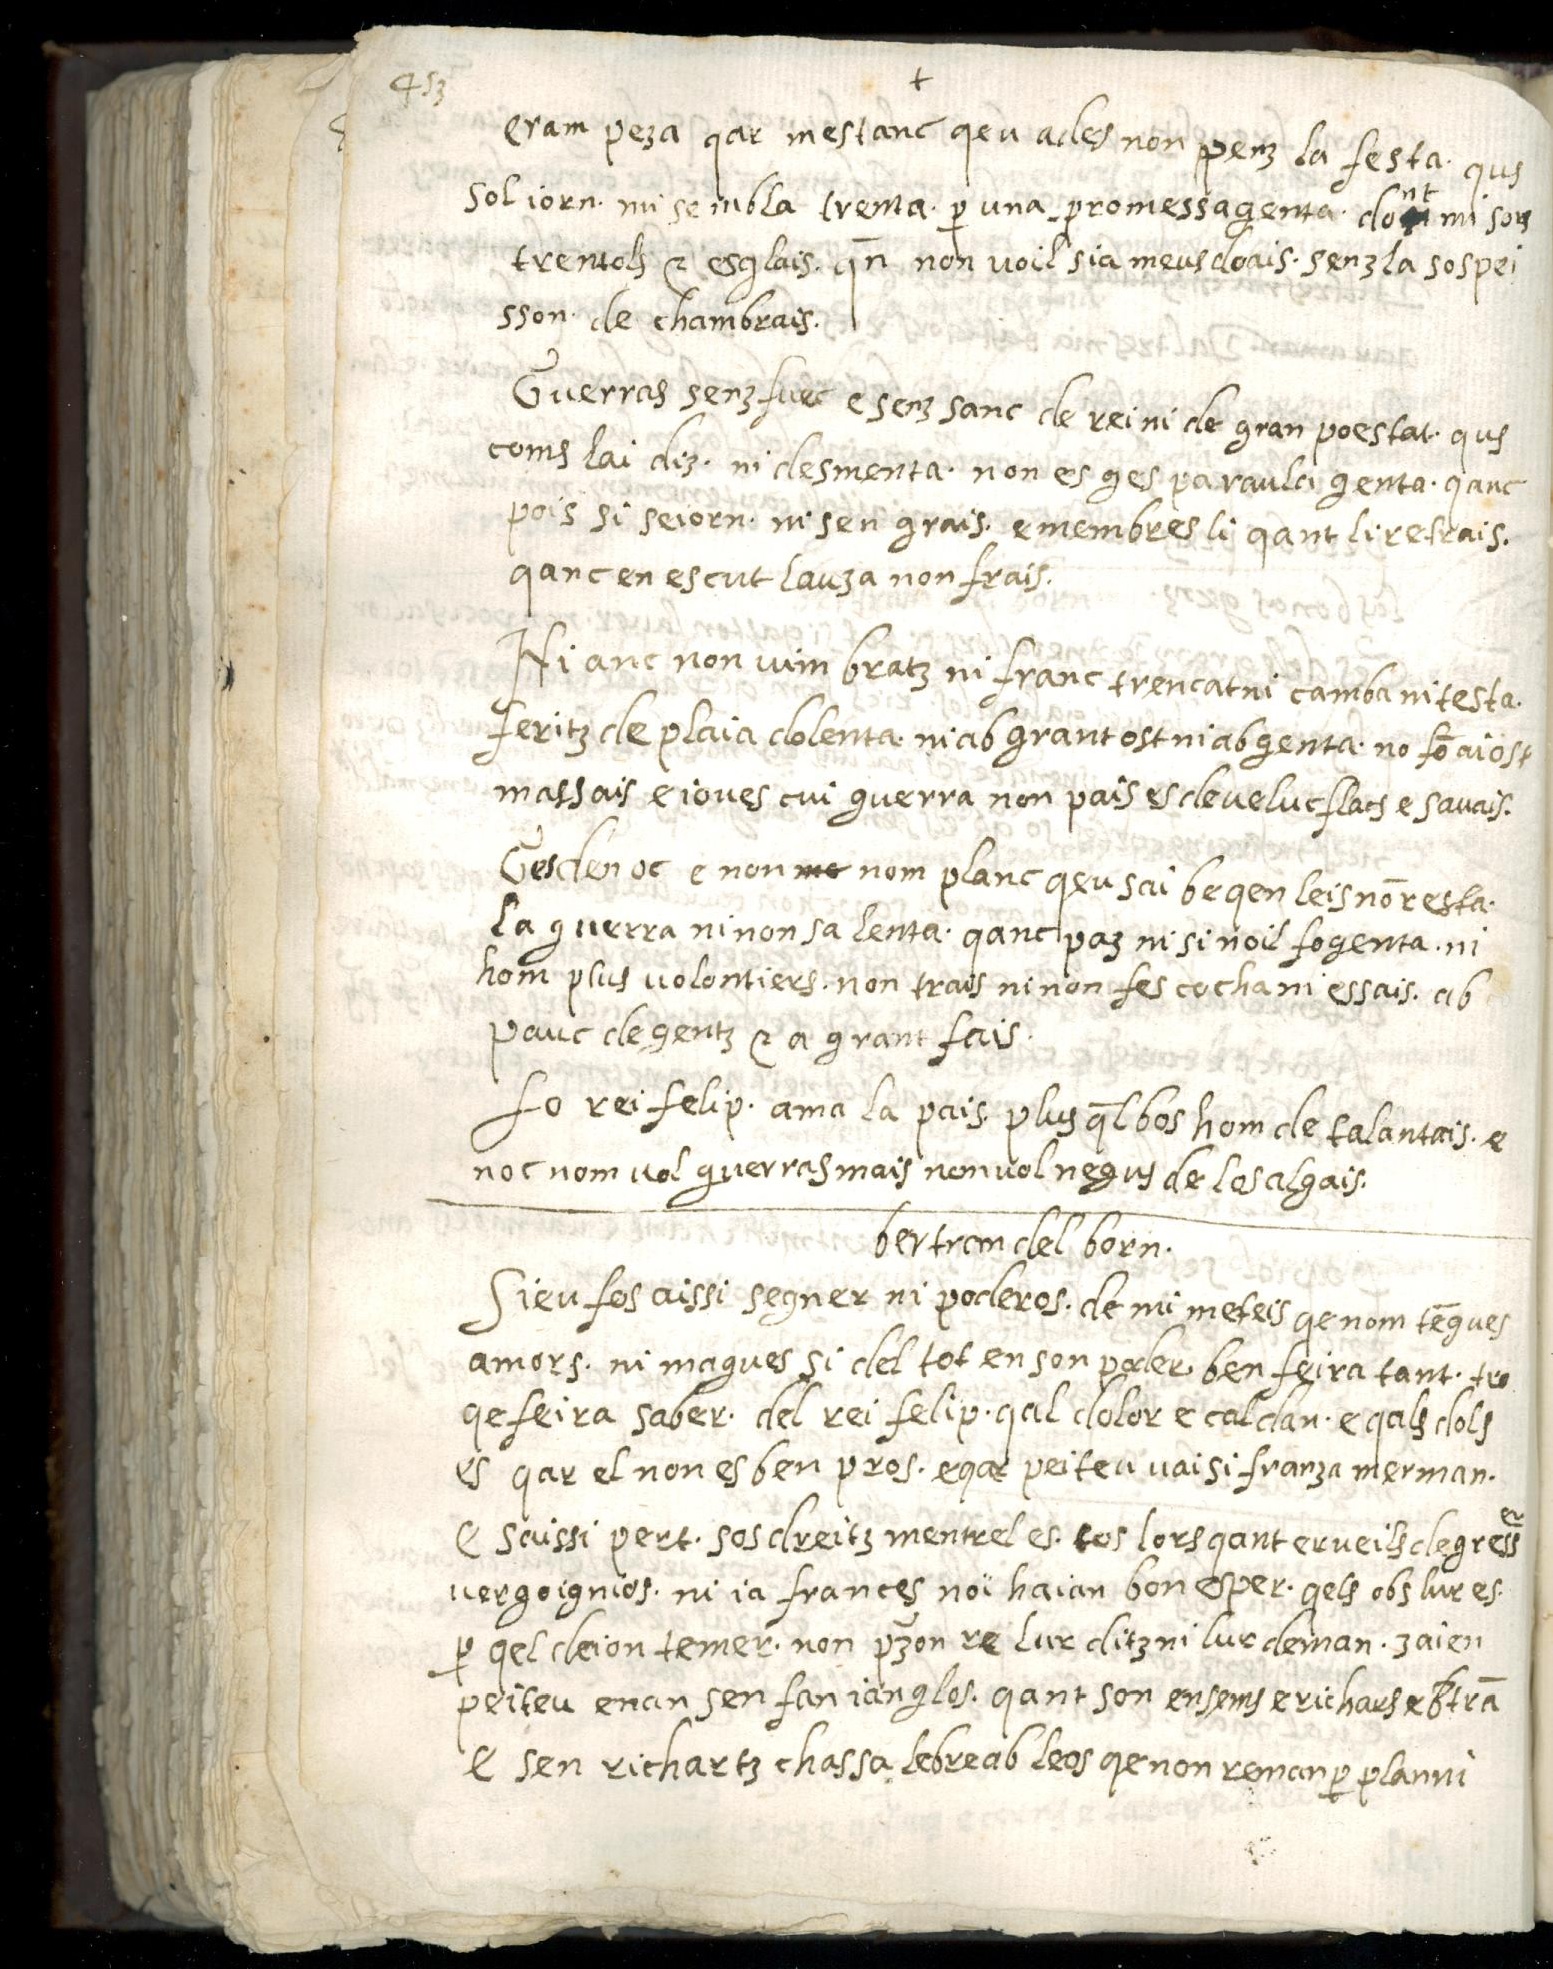 453
+
eram peza qar mestanc qeu ades non penz la festa. qus
sol iorn. mi sembla trenta. p una promessa genta. dont mi sors
trentols & esglais. qn̄ non uoil sia meus doais. senz la sospei
sson. de chambrais.
Guerras senz fuec e senz sanc de rei ni de gran poestat. qus
coms lai diz. ni desmenta. non es ges paraula genta. qanc
pois si seiorn. ni sen grais. e membres li qant li retrais.
qanc en escut lauza non frais.
Ni anc non uim bratz ni franc trencat ni camba ni testa.
feritz de plaia dolenta. ni ab grant ost ni ab genta. no fō ai ost
massais e ioues cui guerra non pais es deueluc flacs e sauais.
Ges den oc e non nom planc qeu sai be qen leis nō resta.
la guerra ni non sa lenta. qanc paz ni si noil fo genta. ni
hom plus uolontiers. non trais ni non fes cocha ni essais. ab
pauc de gentz & a grant fais.
Lo rei felip. ama la pais. plus q̄l bos hom de talantais. e
noc nom uol guerras mais non uol negus de los algais.
bertram del born.
Sieu fos aissi segner ni poderos. de mi meteis qe nom tēgues
amors. ni magues si del tot en son poder. ben feira tant. tro
qe feira saber. del rei felip. qal dolor e cal dan. e qals dols
es qar el non es ben pros. e qar peiteu uai si franza merman.
E saissi pert. sos dreitz mentrel es. tos lors qant erueils degress er
uergoignios. ni ia frances noi haian bon esper. qels obs lur es.
p qel deion temer. non pzon re lur ditz ni lur deman. zaien
peiteu enan sen fan ianglos. qant son ensems e richars e btrā
E sen richartz chassa lebre ab leos qe non reman p plan ni